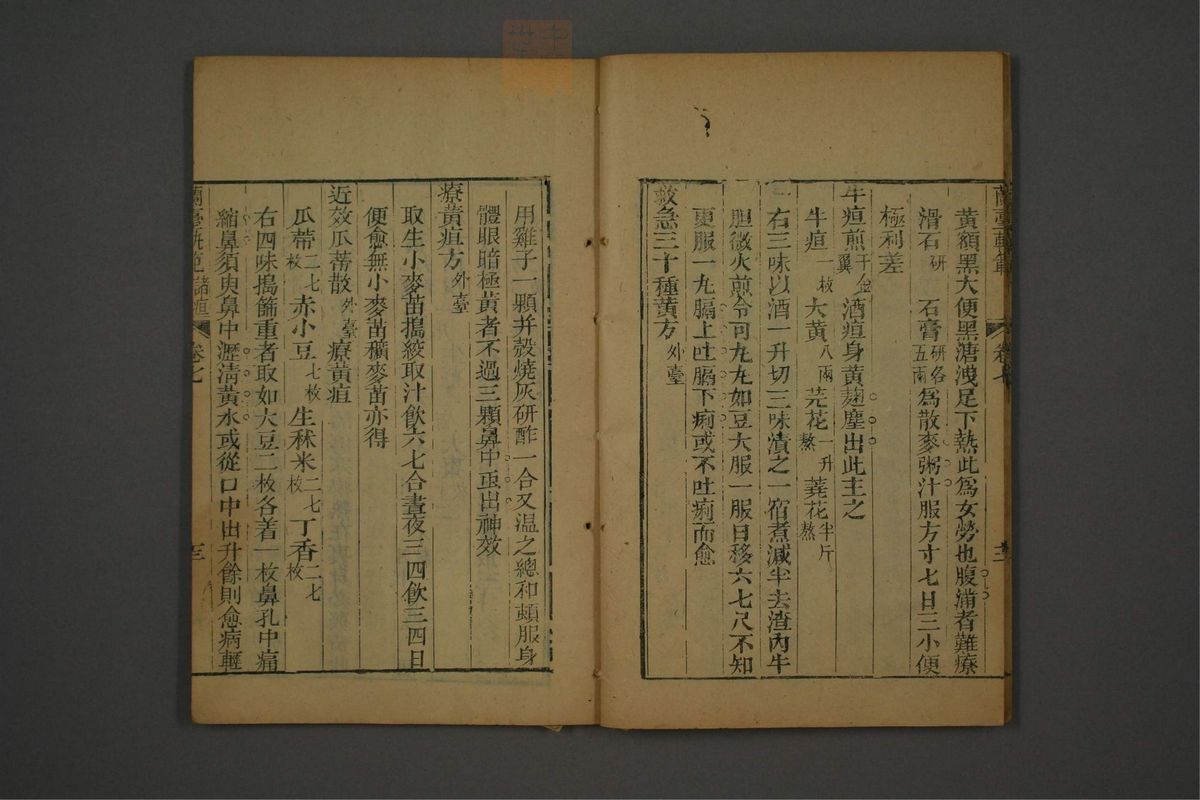 蘭臺軌範 卷七 十二
黃額黑大便黑溏洩足下熱此爲女勞也腹滿者難療
滑石研 石膏研各五兩 爲散麥粥汁服方寸匕日三小便
極利差
牛疸煎千金翼 酒疸身黃麯塵出此主之
牛疸一枚 大黃八兩 芫花一升熬 蕘花半斤熬
右三味以酒一升切三味漬之一宿煮減半去渣內牛
膽微火煎令可丸丸如豆大服一服日移六七尺不知
更服一丸膈上吐膈下痢或不吐痢而愈
救急三十種黃方外臺
用雞子一顆并殼燒灰研酢一合又温之總和頓服身
體眼暗極黃者不過三顆鼻中亟出神效
療黃疸方外臺
取生小麥苗搗絞取汁飲六七合晝夜三四飲三四日
便愈無小麥苗穬麥苗亦得
近效瓜蒂散外臺 療黃疸
瓜蒂二七枚 赤小豆七枚 生秫米二七枚 丁香二七枚
右四味搗篩重者取如大豆二枚各着一枚鼻孔中痛
縮鼻須臾鼻中瀝清黃水或從口中出升餘則愈病輕
蘭臺軌範 諸疸 卷七